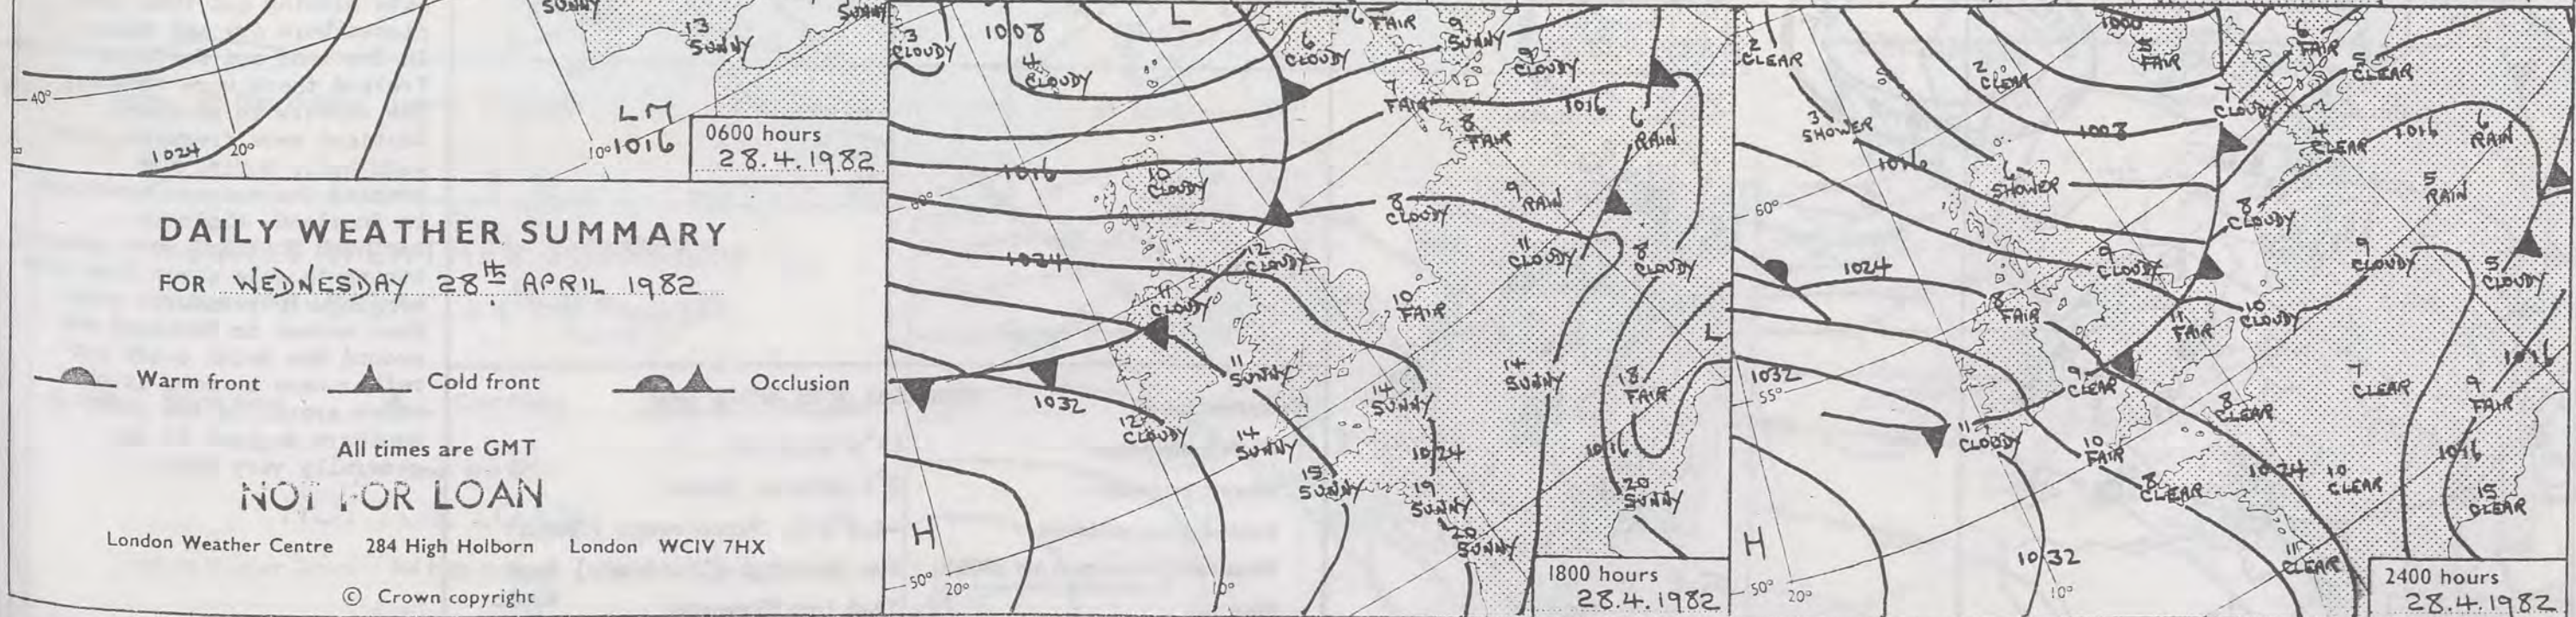 SUNNY
13
SUNNY
SUNNY
40°
1024
20°
10°
1016
0600 hours
28.4.1982
DAILY WEATHER SUMMARY
FOR WEDNESDAY 28th APRIL 1982
Warm front Cold front Occlusion
All times are GMT
NOT FOR LOAN
London Weather Centre 284 High Holborn London WC1V 7HX
© Crown copyright
L
3
CLOUDY
1008
4
CLOUDY
6
CLOUDY
6
FAIR
9
SUNNY
9
CLOUDY
7
FAIR
8
FAIR
1016
6
RAIN
1016
10
CLOUDY
60°
8
CLOUDY
9
RAIN
11
CLOUDY
8
CLOUDY
12
CLOUDY
1024
11
CLOUDY
10
FAIR
L
11
SUNNY
14
SUNNY
14
SUNNY
18
FAIR
1032
12
CLOUDY
14
SUNNY
1024
1016
15
SUNNY
19
SUNNY
20
SUNNY
20
SUNNY
H
50°
20°
10°
1800 hours
28.4.1982
2
CLEAR
1000
5
FAIR
6
FAIR
5
CLEAR
2
CLEAR
7
CLOUDY
3
SHOWER
1008
4
CLEAR
1016
6
RAIN
1016
6
SHOWER
5
RAIN
60°
8
CLOUDY
9
CLOUDY
9
CLOUDY
5
CLOUDY
1024
8
FAIR
11
FAIR
10
CLOUDY
1016
1032
55°
9
CLEAR
7
CLEAR
9
FAIR
8
CLEAR
11
CLOUDY
10
FAIR
1016
8
CLEAR
1024
10
CLEAR
15
CLEAR
H
1032
11
CLEAR
50°
20°
10°
2400 hours
28.4.1982